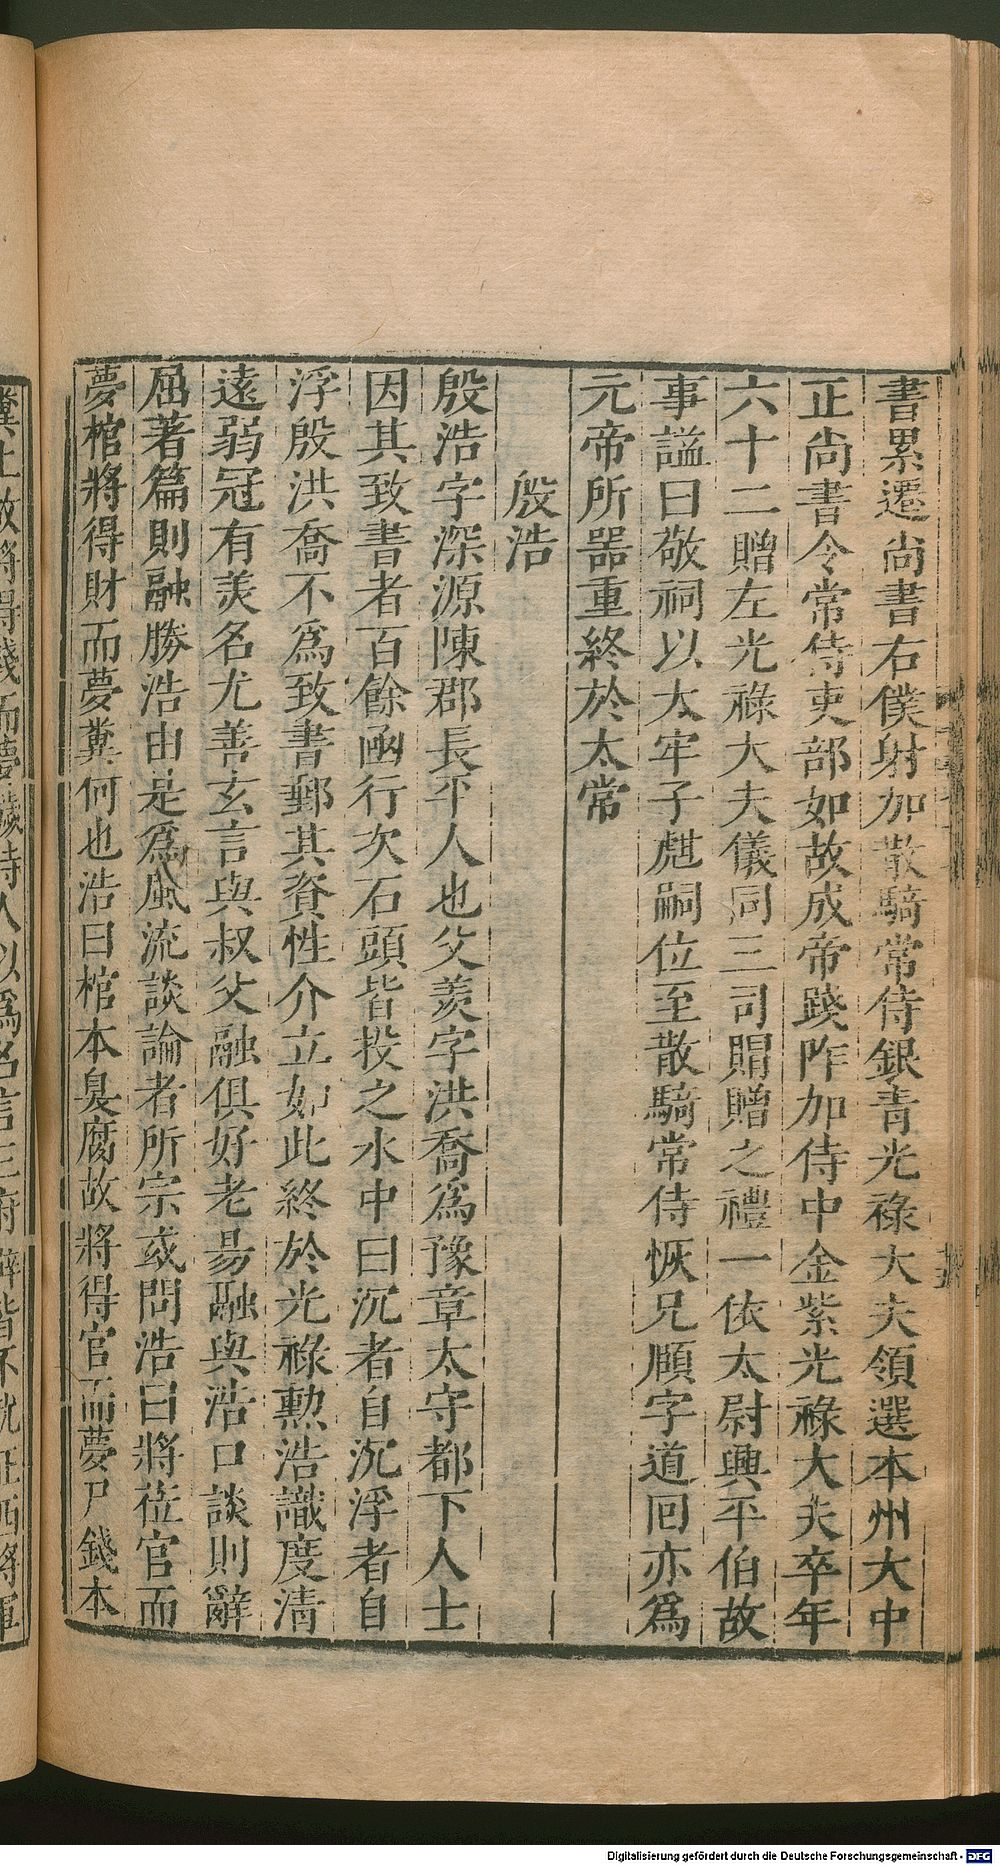 書累遷尚書右僕射加散騎常侍銀青光祿大夫領選本州大中
正尚書令常侍吏部如故成帝踐阼加侍中金紫光祿大夫卒年
六十二贈左光祿大夫儀同三司賵贈之禮一依太尉興平伯故
事諡曰敬祠以太牢子彪嗣位至散騎常侍恢兄顒字道囘亦爲
元帝所器重終於太常
殷浩
殷浩字深源陳郡長平人也父羨字洪喬爲豫章太守都下人士
因其致書者百餘凾行次石頭皆投之水中曰沉者自沉浮者自
浮殷洪喬不爲致書郵其資性介立如此終於光祿勲浩識度清
遠弱冠有羙名尤善玄言與叔父融俱好老易融與浩口談則辭
屈著篇則融勝浩由是爲風流談論者所宗或問浩曰將莅官而
夢棺將得財而夢糞何也浩曰棺本臭腐故將得官而夢尸錢本
糞土故將得錢而夢穢時人以爲名言三府辟皆不就征西將軍
Digitalisierung gefördert durch die Deutsche Forschungsgemeinschaft - DFG